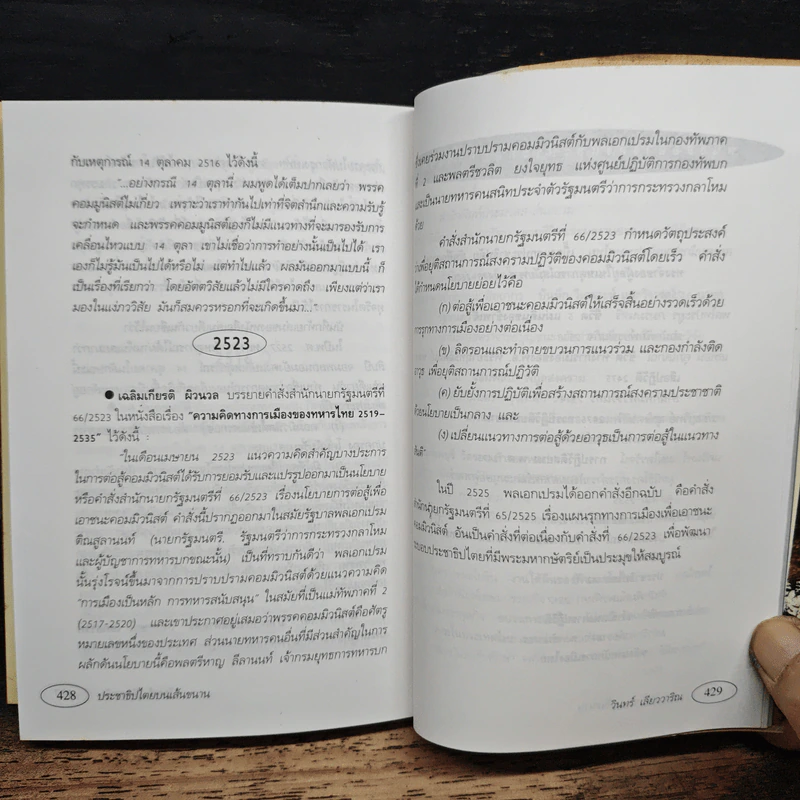 กับเหตุการณ์ 14 ตุลาคม 2516 ไว้ดังนี้
"...อย่างกรณี 14 ตุลานี่ ผมพูดได้เต็มปากเลยว่า พรรค
คอมมูนิสต์ไม่เกี่ยว เพราะว่าเราทำกันไปเท่าที่จิตสำนึกและความรับรู้
จะกำหนด และพรรคคอมมูนิสต์เองก็ไม่มีแนวทางที่จะมารองรับการ
เคลื่อนไหวแบบ 14 ตุลา เขาไม่เชื่อว่าการทำอย่างนั้นเป็นไปได้ เรา
เองก็ไม่รู้มันเป็นไปได้หรือไม่ แต่ทำไปแล้ว ผลมันออกมาแบบนี้ ก็
เป็นเรื่องที่เรียกว่า โดยอัตตวิสัยแล้วไม่มีใครคาดถึง เพียงแต่ว่าเรา
มองในแง่ภววิสัย มันก็สมควรหรอกที่จะเกิดขึ้นมา..."
2523
● เฉลิมเกียรติ ผิวนวล บรรยายคำสั่งสำนักนายกรัฐมนตรีที่
66/2523 ในหนังสือเรื่อง "ความคิดทางการเมืองของทหารไทย 2519-
2535" ไว้ดังนี้ :
"ในเดือนเมษายน 2523 แนวความคิดสำคัญบางประการ
ในการต่อสู้คอมมิวนิสต์ได้รับการยอมรับและแปรรูปออกมาเป็นนโยบาย
หรือคำสั่งสำนักนายกรัฐมนตรีที่ 66/2523 เรื่องนโยบายการต่อสู้เพื่อ
เอาชนะคอมมิวนิสต์ คำสั่งนี้ปรากฏออกมาในสมัยรัฐบาลพลเอกเปรม
ติณสูลานนท์ (นายกรัฐมนตรี, รัฐมนตรีว่าการกระทรวงกลาโหม
และผู้บัญชาการทหารบกขณะนั้น) เป็นที่ทราบกันดีว่า พลเอกเปรม
นั้นรุ่งโรจน์ขึ้นมาจากการปราบปรามคอมมิวนิสต์ด้วยแนวความคิด
"การเมืองเป็นหลัก การทหารสนับสนุน" ในสมัยที่เป็นแม่ทัพภาคที่ 2
(2517-2520) และเขาประกาศอยู่เสมอว่าพรรคคอมมิวนิสต์คือศัตรู
หมายเลขหนึ่งของประเทศ ส่วนนายทหารคนอื่นที่มีส่วนสำคัญในการ
ผลักดันนโยบายนี้คือพลตรีหาญ ลีลานนท์ เจ้ากรมยุทธการทหารบก
428 ประชาธิปไตยบนเส้นขนาน
ซึ่งเคยร่วมงานปราบปรามคอมมิวนิสต์กับพลเอกเปรมในกองทัพภาค
ที่ 2 และพลตรีชวลิต ยงใจยุทธ แห่งศูนย์ปฏิบัติการกองทัพบก
และเป็นนายทหารคนสนิทประจำตัวรัฐมนตรีว่าการกระทรวงกลาโหม
ด้วย
คำสั่งสำนักนายกรัฐมนตรีที่ 66/2523 กำหนดวัตถุประสงค์
ว่าเพื่อยุติสถานการณ์สงครามปฏิวัติของคอมมิวนิสต์โดยเร็ว คำสั่ง
ได้กำหนดนโยบายย่อยไว้คือ
(ก) ต่อสู้เพื่อเอาชนะคอมมิวนิสต์ให้เสร็จสิ้นอย่างรวดเร็วด้วย
การรุกทางการเมืองอย่างต่อเนื่อง
(ข) ลิดรอนและทำลายขบวนการแนวร่วม และกองกำลังติด
อาวุธ เพื่อยุติสถานการณ์ปฏิวัติ
(ค) ยับยั้งการปฏิบัติเพื่อสร้างสถานการณ์สงครามประชาชาติ
ด้วยนโยบายเป็นกลาง และ
(ง) เปลี่ยนแนวทางการต่อสู้ด้วยอาวุธเป็นการต่อสู้ในแนวทาง
สันติ"
ในปี 2525 พลเอกเปรมได้ออกคำสั่งอีกฉบับ คือคำสั่ง
สำนักนายกรัฐมนตรีที่ 65/2525 เรื่องแผนรุกทางการเมืองเพื่อเอาชนะ
คอมมิวนิสต์ อันเป็นคำสั่งที่ต่อเนื่องกับคำสั่งที่ 66/2523 เพื่อพัฒนา
ระบอบประชาธิปไตยที่มีพระมหากษัตริย์เป็นประมุขให้สมบูรณ์
วินทร์ เลียววาริณ 429